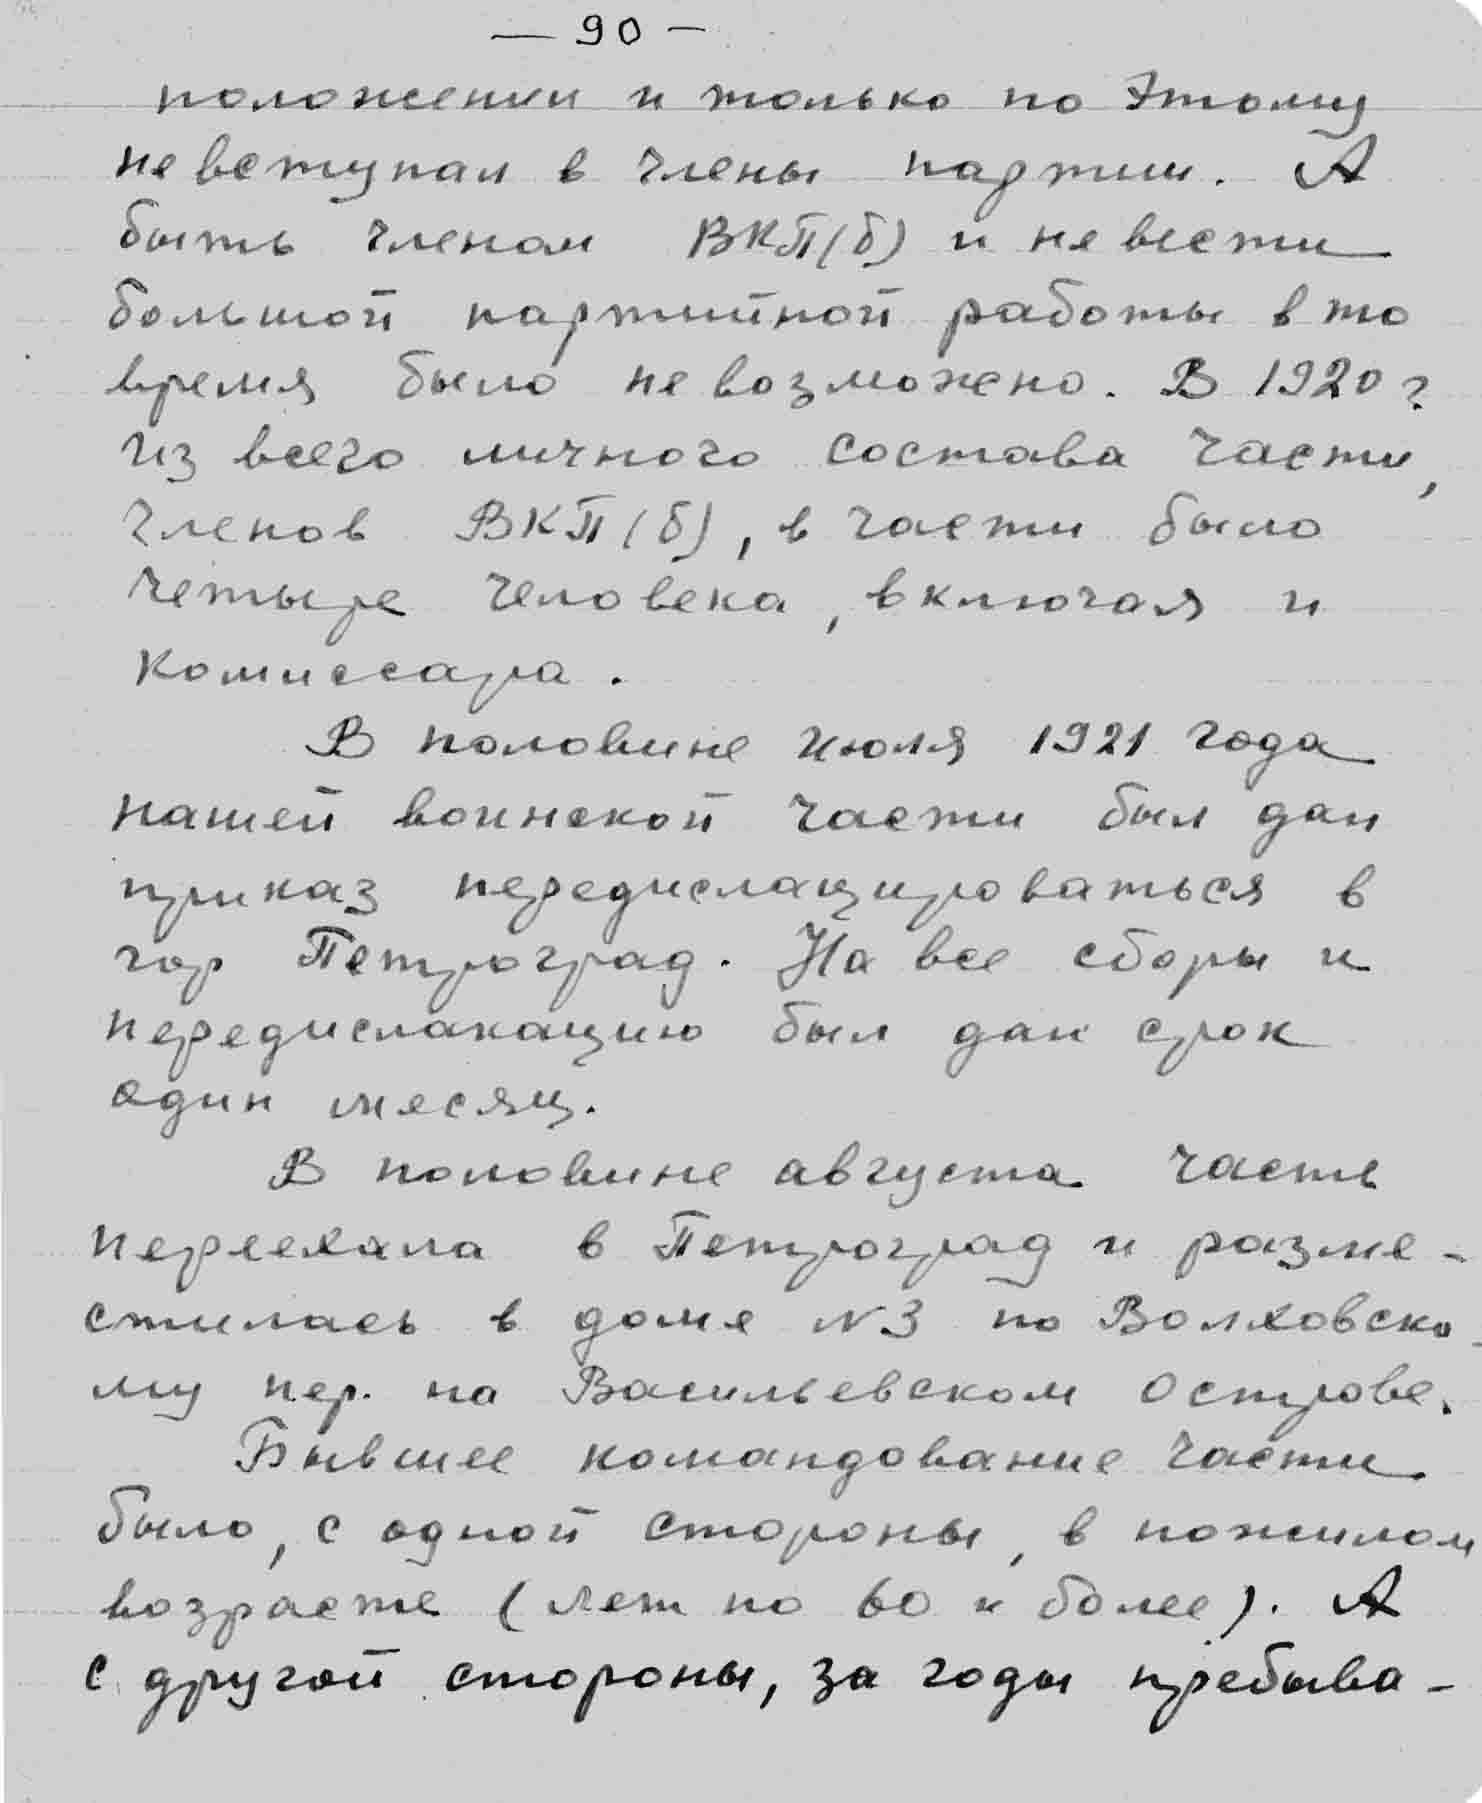 — 90 —
положении и только по Этому
не вступал в члены партии. А
быть членом ВКП(б) и не вести
большой партийной работы в то
время было не возможно. В 1920 г.
из всего личного состава части,
членов ВКП(б), в части было
четыре человека, включая и
комиссара.
В половине июля 1921 года
нашей воинской части был дан
приказ передислацироваться в
гор Петроград. На все сборы и
передислакацию был дан срок
один месяц.
В половине августа часть
переехала в Петроград и разме-
стилась в доме №3 по Волховско-
му пер. на Васильевском острове.
Бывшее командование части
было, с одной стороны, в пожилом
возрасте (лет по 60 и более). А
с другой стороны, за годы пребыва-